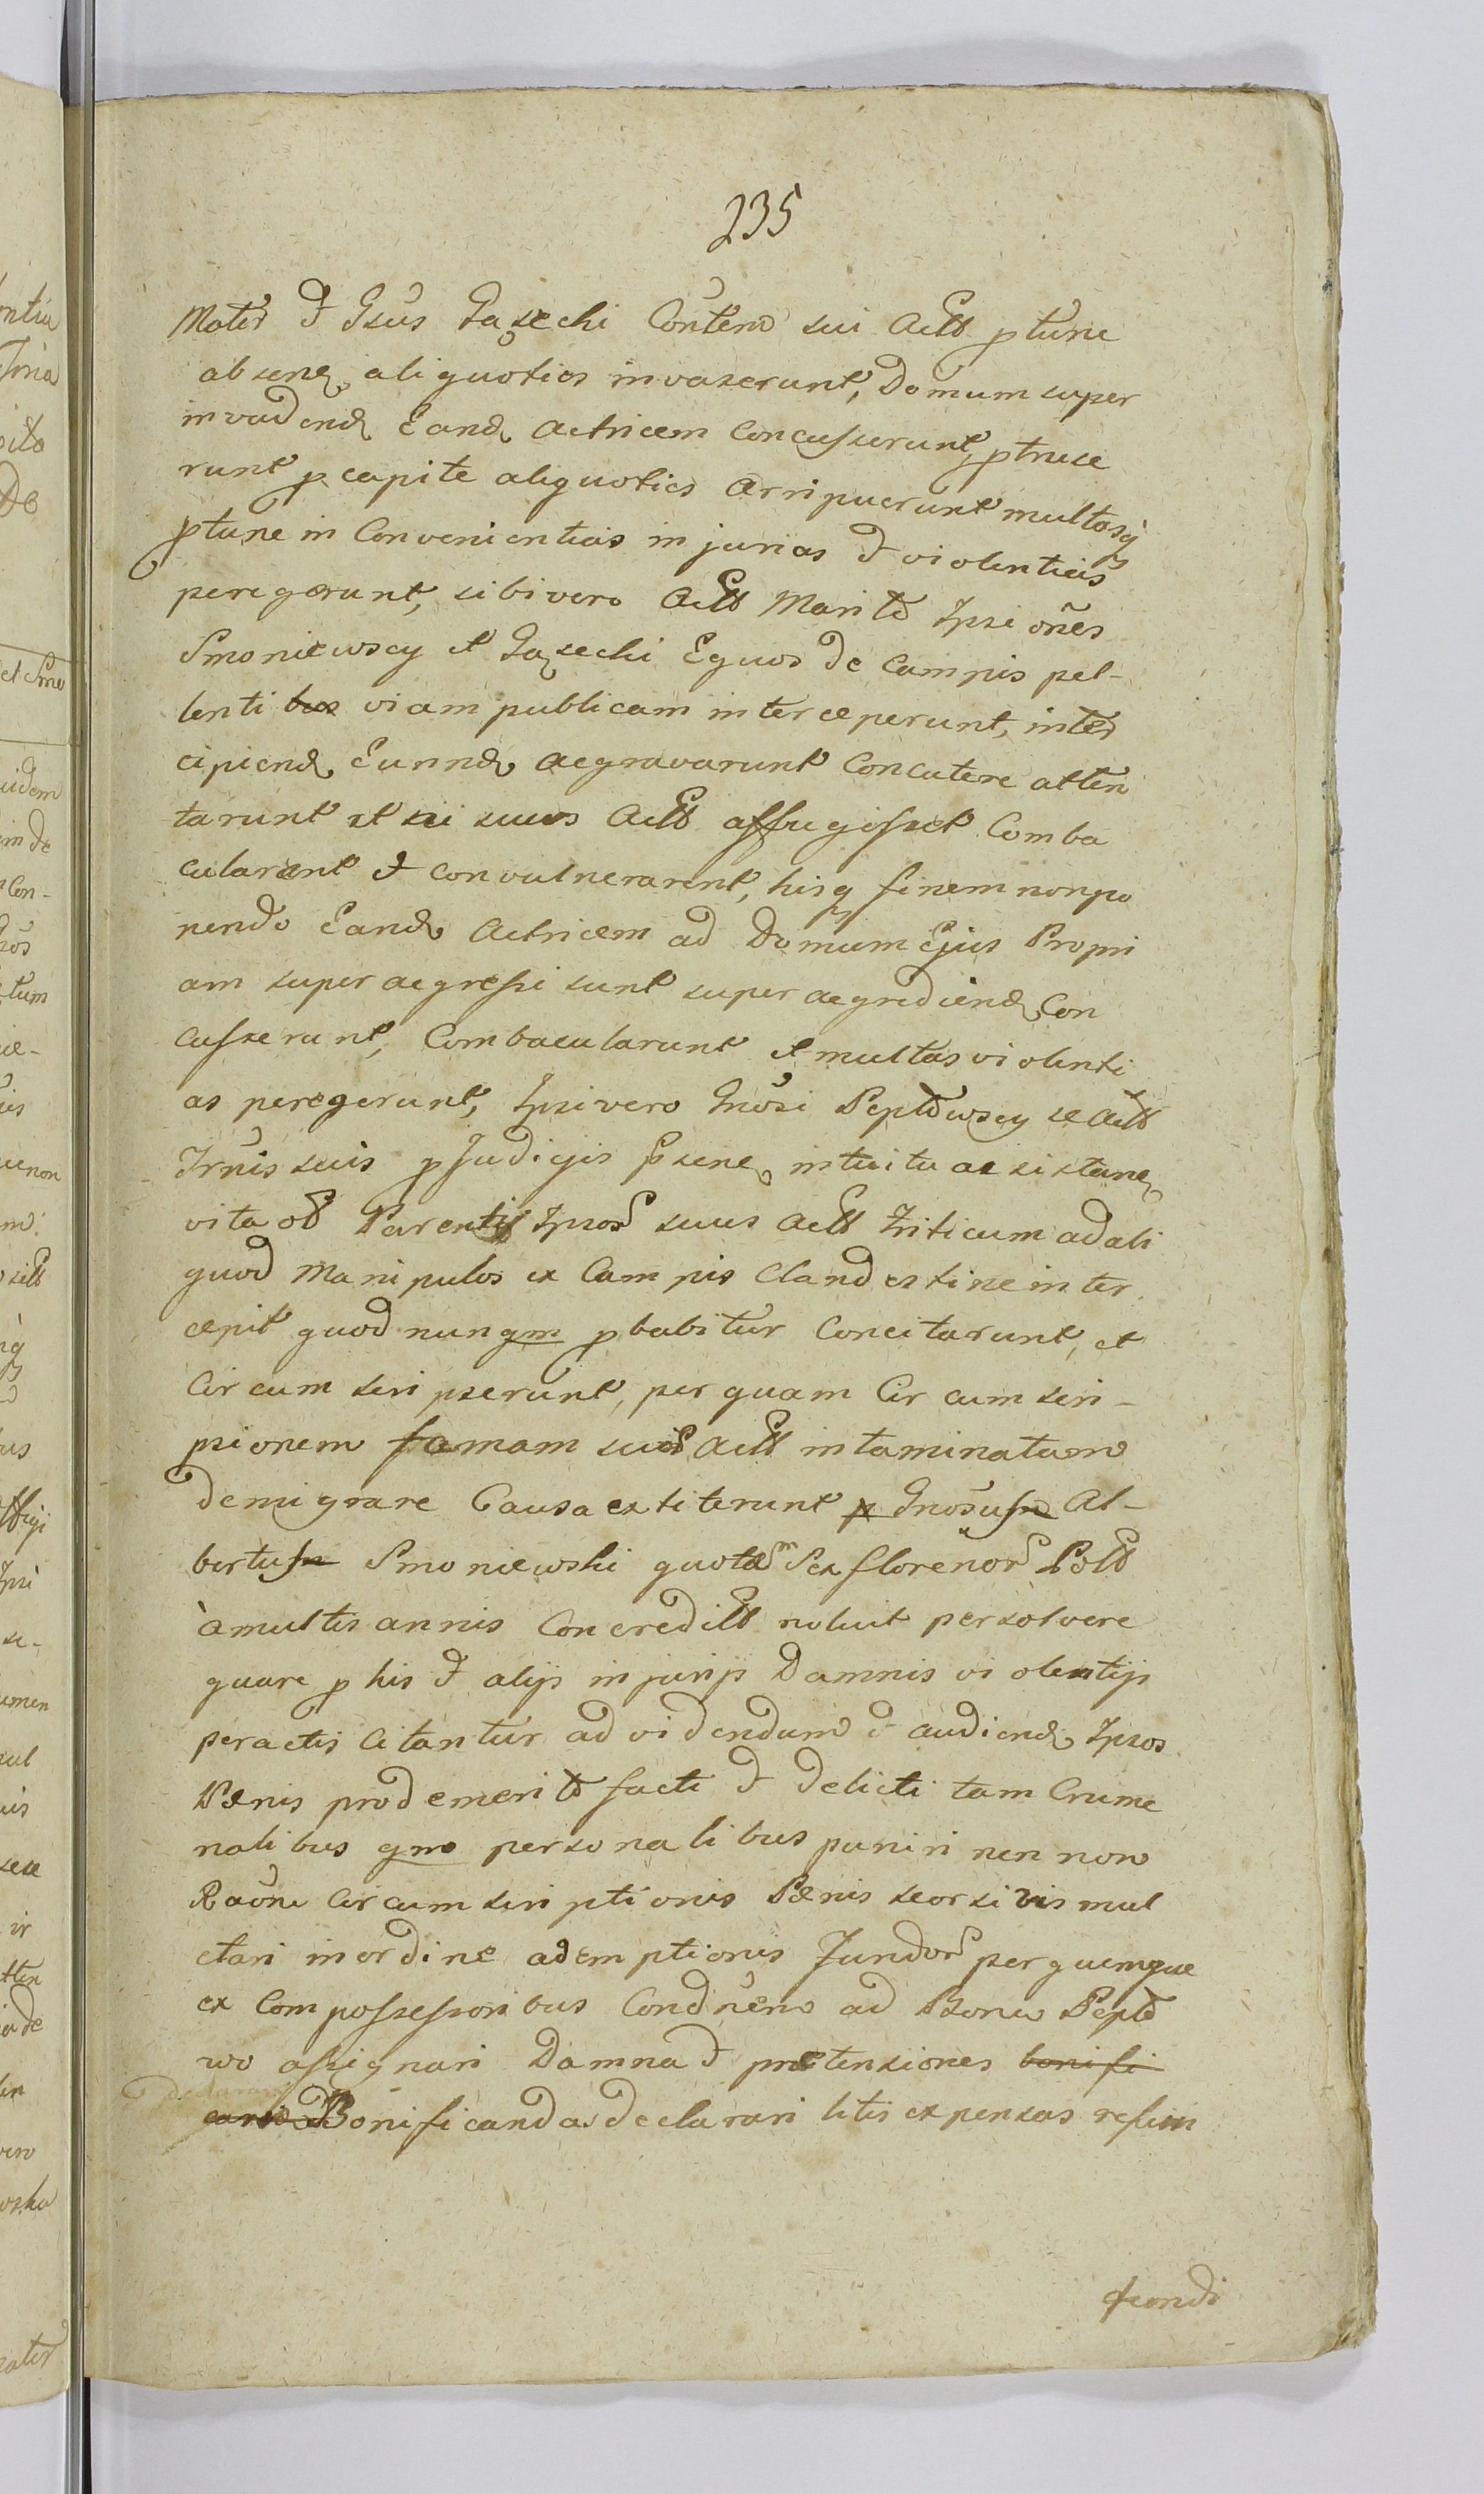 235
Mater & Gsus Gazecki Contem sui Actt ptune
absene aliquoties invaserunt, Domum super
invadend Eand Actricem Concusserunt, ptruse
runt p capite aliquoties Arripuerunt multasq
ptune in Convenientias injurias & violentias
peregerunt, sibi vero Actt Marito Ipsi oñes
Smoniewscy et Gazecki Equos de Campis pel-
lentibus viam publicam interceperunt, inter
cipiend Eunnd aegravarunt Concutere atten
tarunt et ni suus Actt affugisset Comba
cularent & convulnerarent, hisq finem nonpo
nendo Eand Actricem ad Domum Ejus Propri
am superaegressi sunt superaegrediend Con
cusserunt, Combacularunt et multas violenti
as peregerunt, Ipsi vero Gnosi Peptowscy se Actt
Irnis suis p Judicijs psene intuitu aesistane
vita ob Parentis Ipsor suus Actt triticum ad ali
quod Manipulos ex Campis Clandestine inter
cepit quod nunqm pbabitur Concitarunt, et
Circum scripserunt, per quam Circum scri-
psionem famam suis Actt intaminatam
demigrare Causa extiterunt Gnosus Al-
bertus Smoniewski quotam Sex florenor Poltt
à multis annis Concreditt noluit persolvere
quare p his & alijs injurijs Damnis violentijs
peractis Citantur ad videndum & audiend Ipsos
Pænis prodemerito facti & delicti tam Crime
nalibus qm personalibus puniri nen non
Raōne Circum scriptionis Pænis seorsivis mul
ctari in ordine ademptionis Fundor per quemque
ex Compossessoribus Condnem ad Bona Pepto
wo assignari Damna & prætensiones bonifi
cari Bonificandas declarari litis expensas refun
fundi